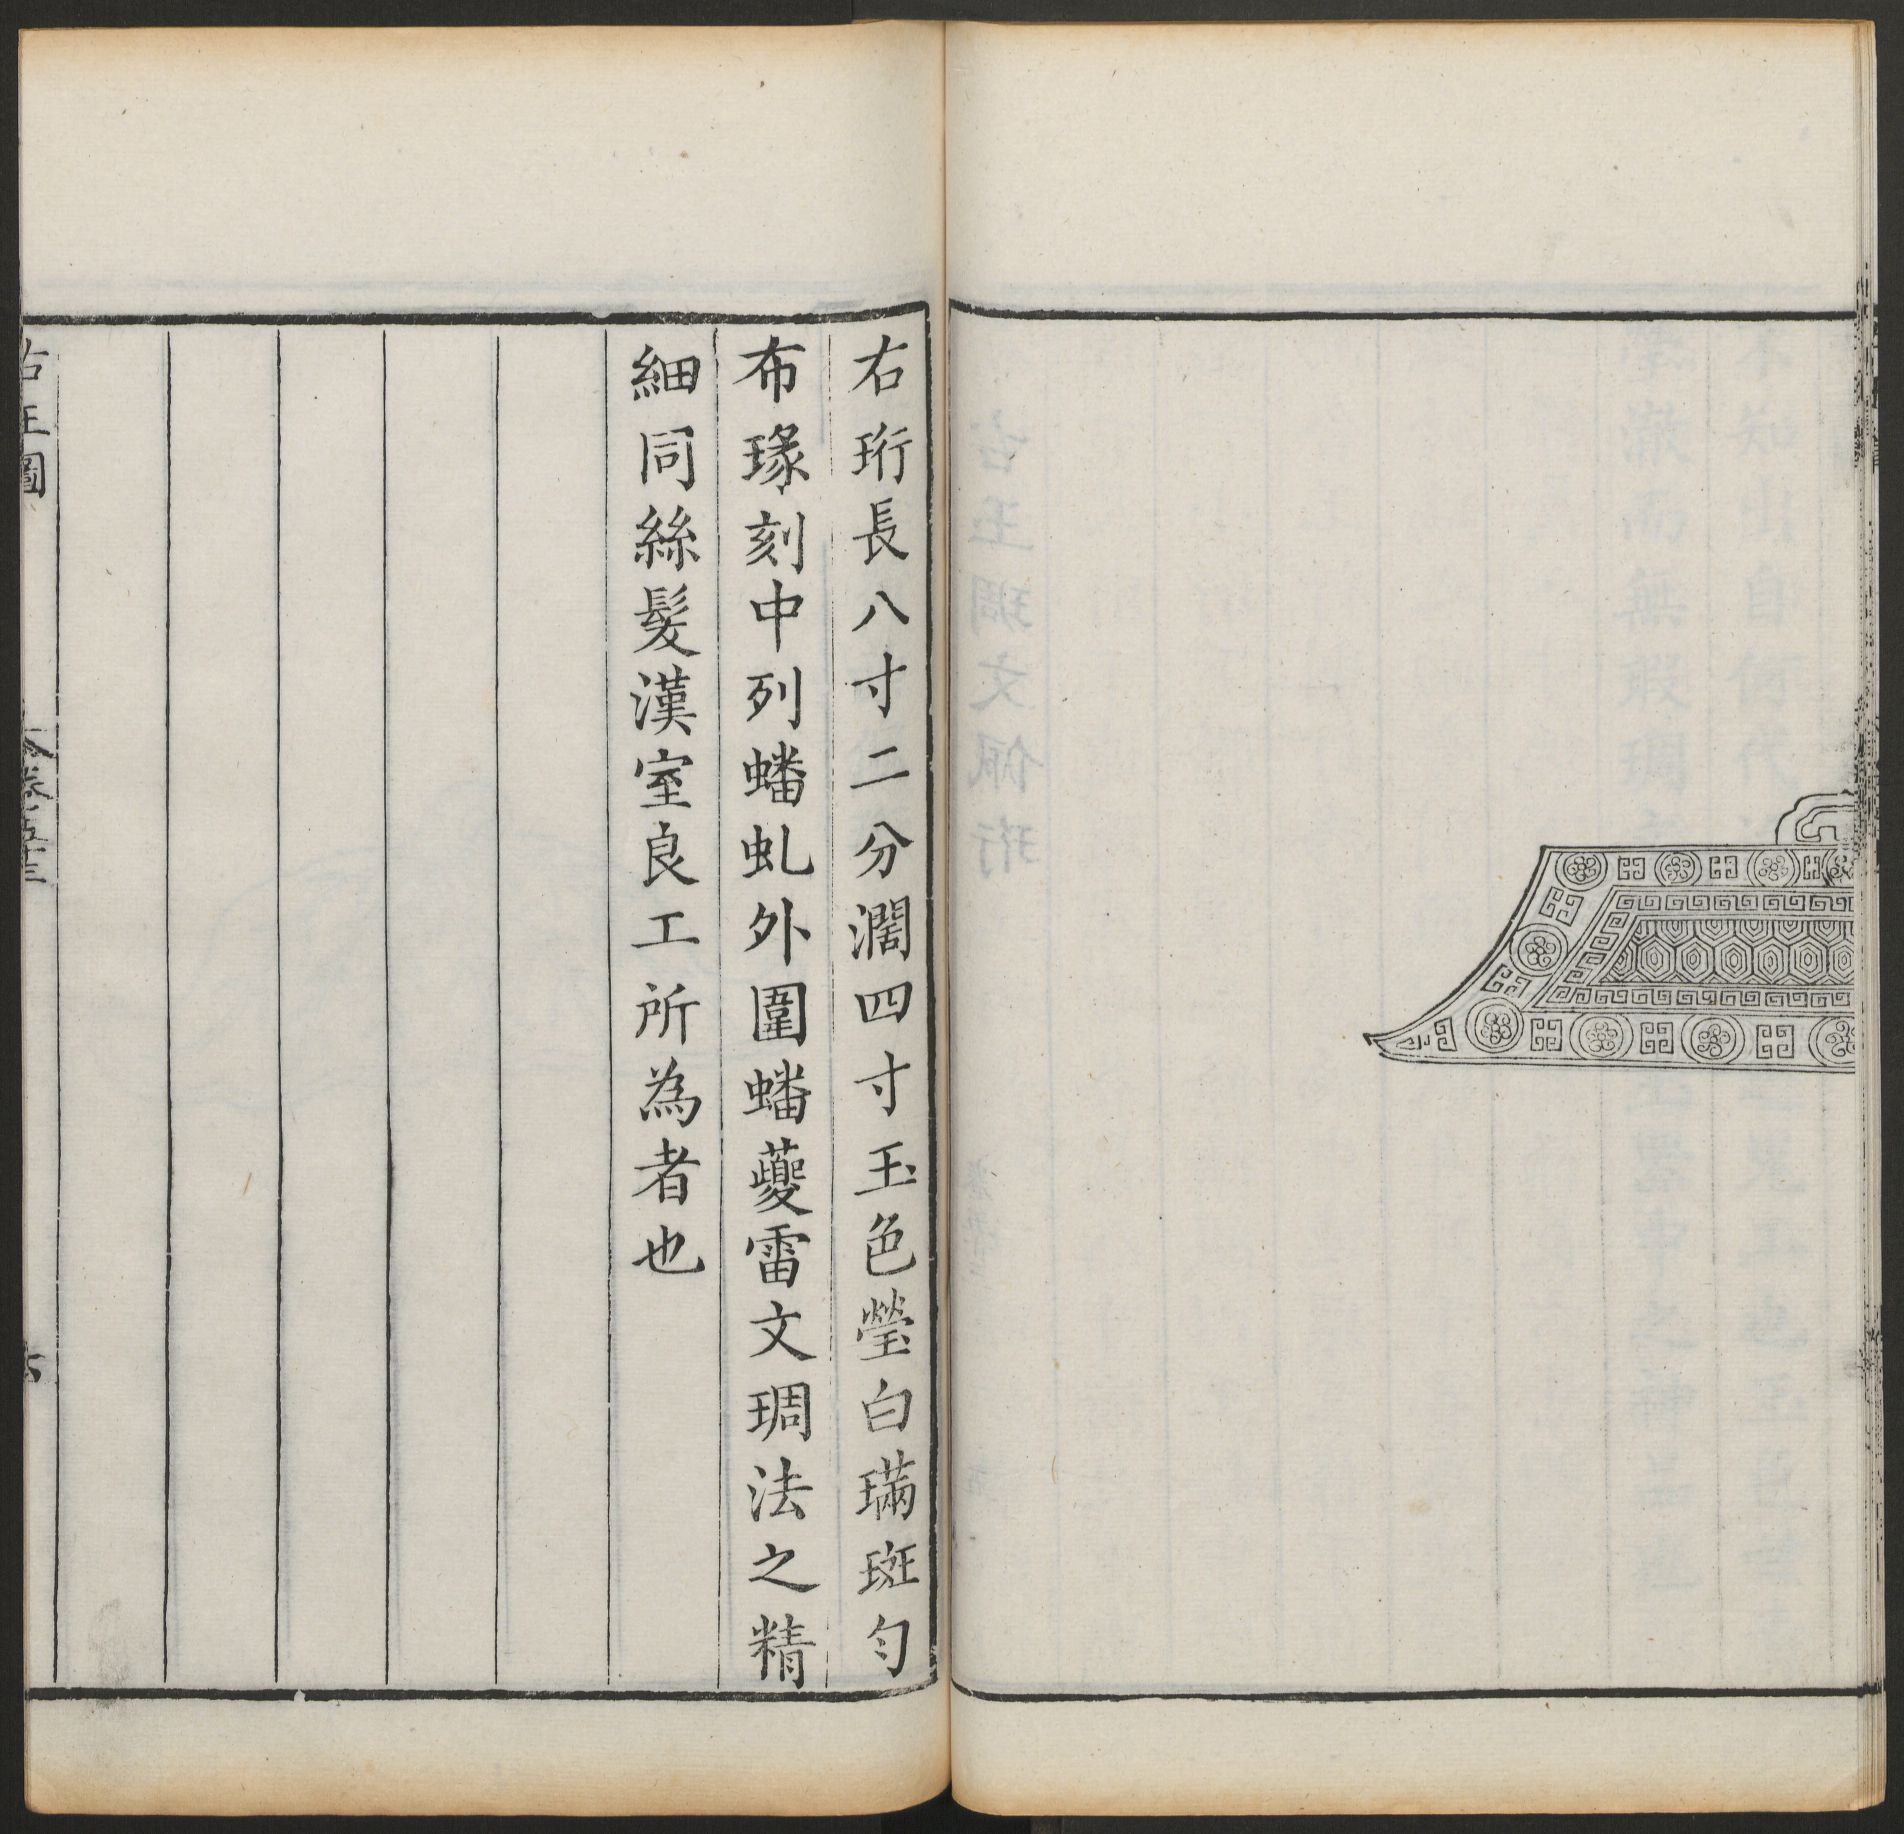 右珩長八寸二分濶四寸玉色瑩白璊斑勻
布瑑刻中列蟠虬外圍蟠夔雷文琱法之精
細同絲髮漢室良工所為者也
古玉圖